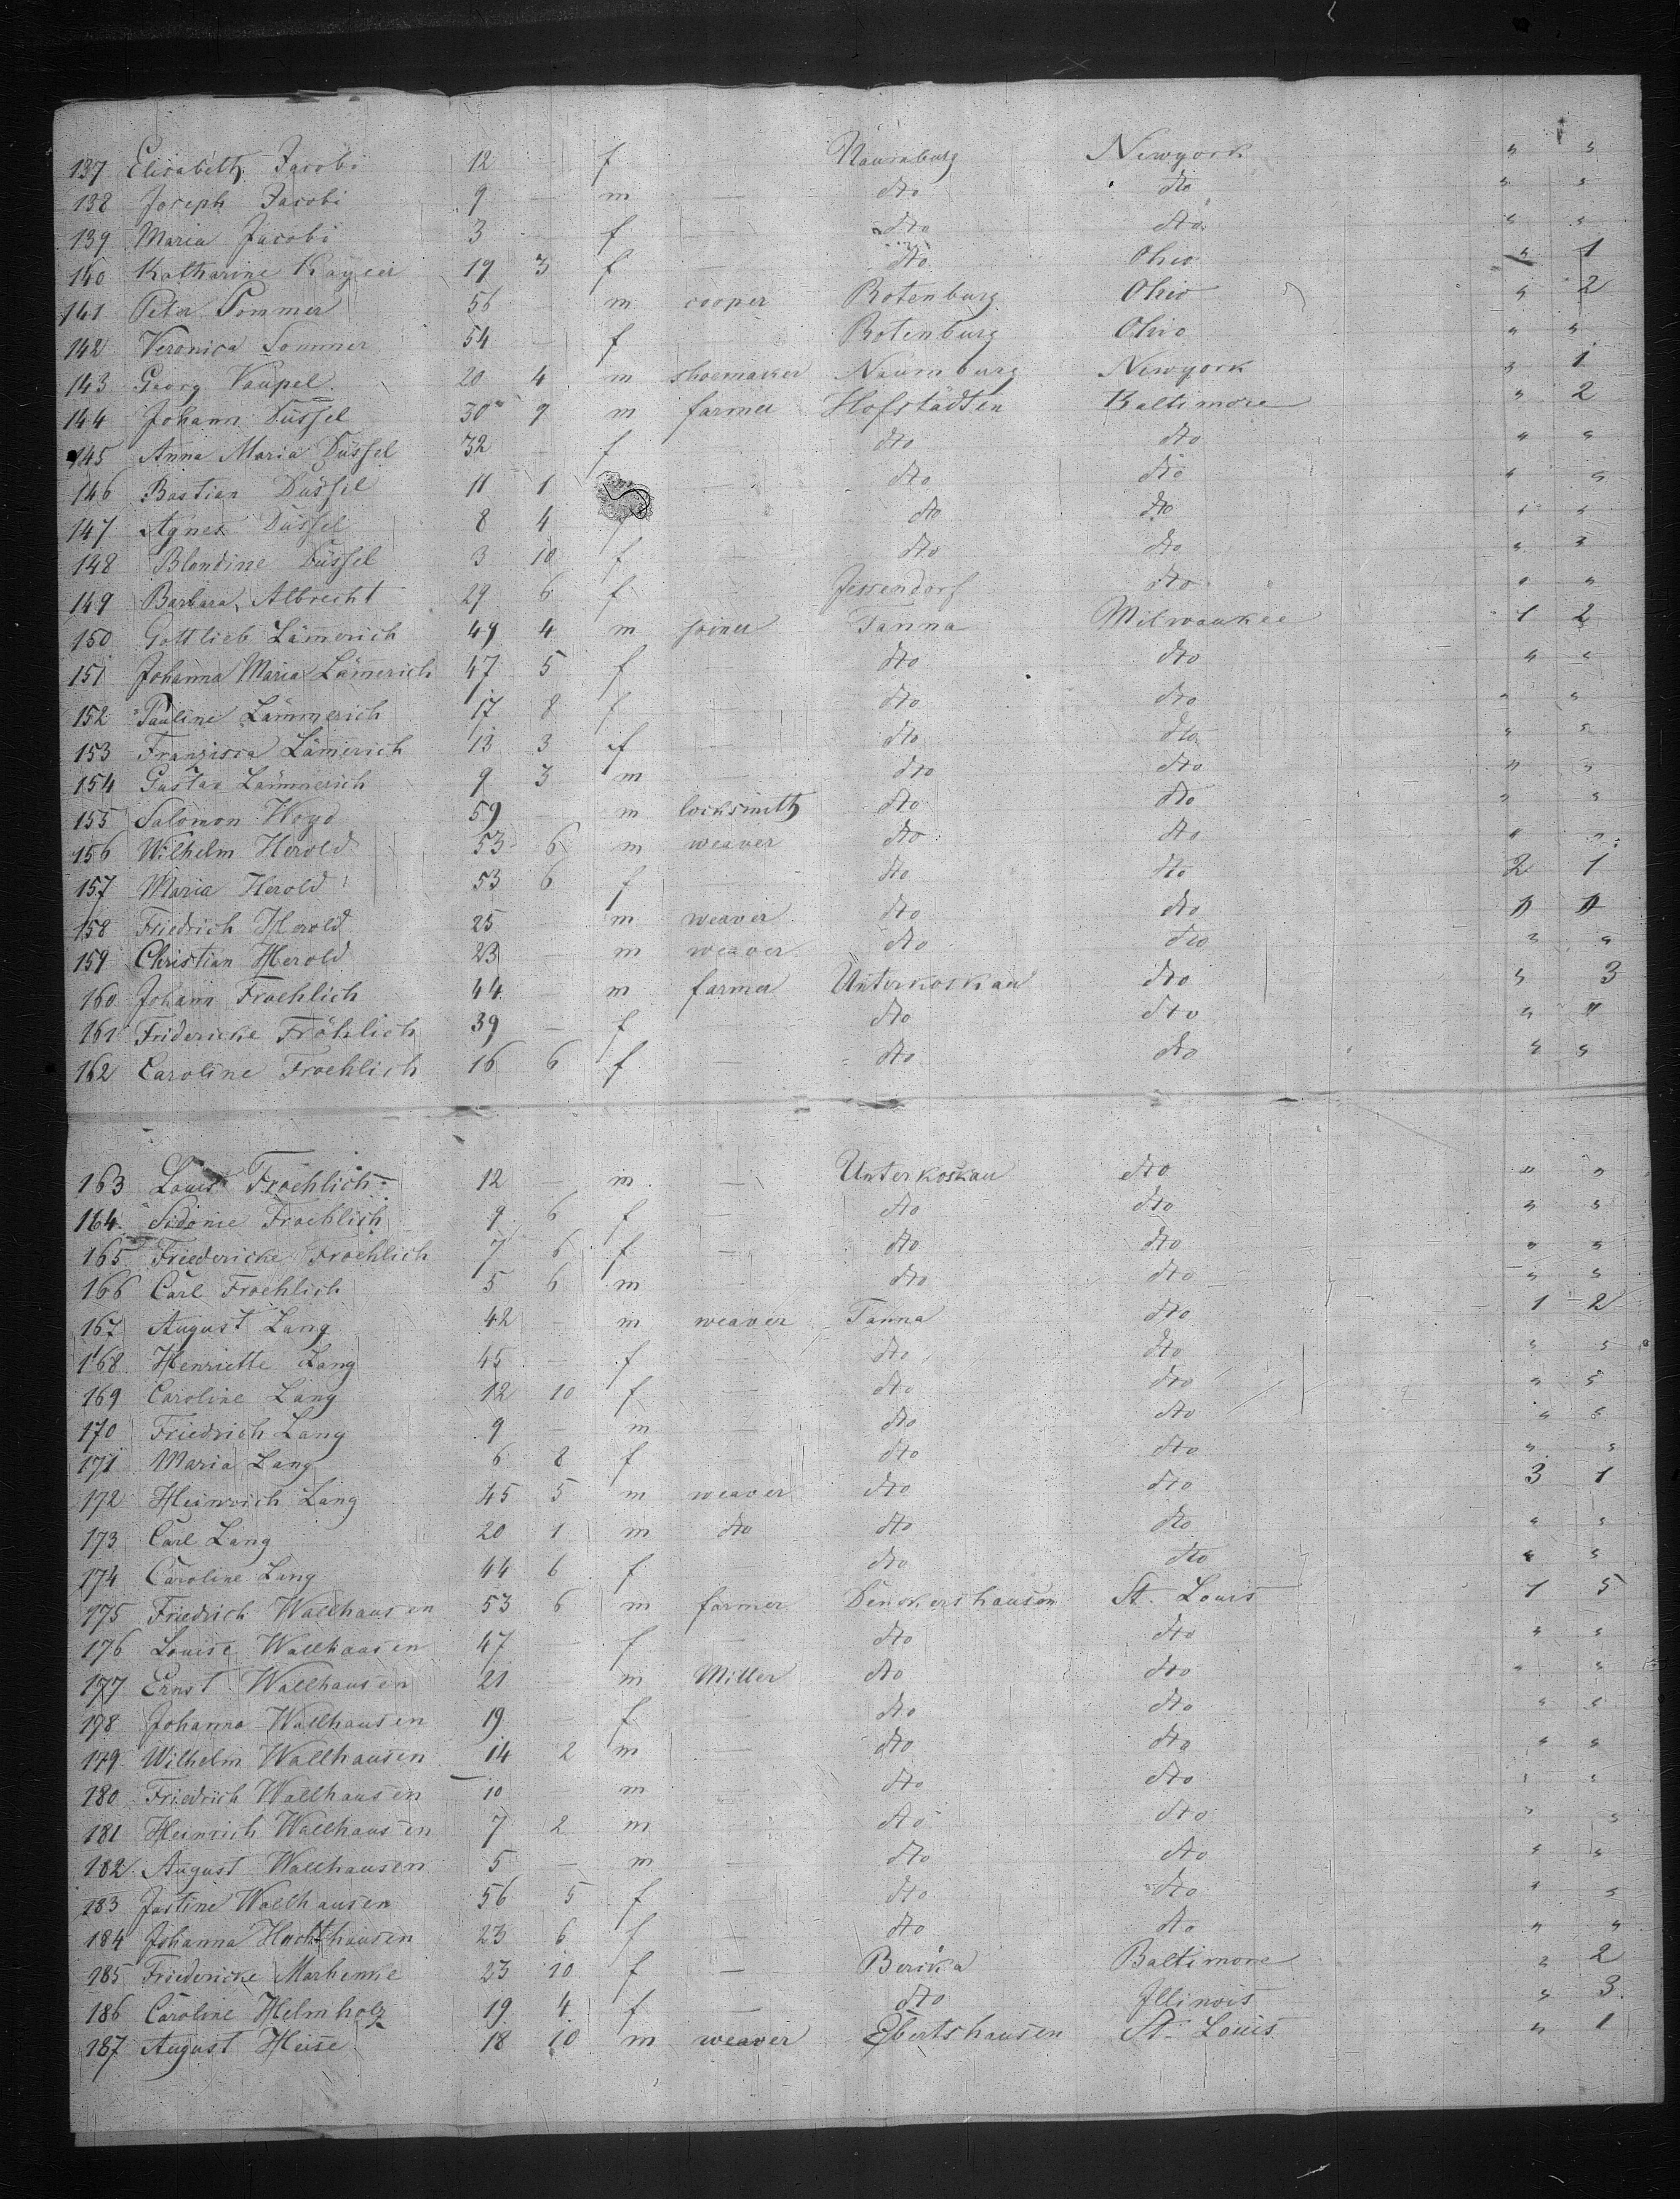 137 Elisabeth Jacobi 12 — f Naumburg Newyork " "
138 Joseph Jacobi 9 — m — dto dto " "
139 Maria Jacobi 3 — f — dto dto " "
140 Katharine Kayser 19 3 f — dto Ohio " 1
141 Peter Sommer 56 — m cooper Rotenburg Ohio " 2
142 Veronica Sommer 54 — f Rotenburg Ohio " "
143 Georg Vaupel 20 4 m shoemaker Naumburg Newyork " 1
144 Johann Düssel 30 9 m farmer Hofstädten Baltimore " 2
145 Anna Maria Düssel 32 — f dto dto " "
146 Bastian Düssel 11 1 — dto dto " "
147 Agnes Düssel 8 4 dto dto " "
148 Blondine Düssel 3 10 f — dto dto " "
149 Barbara Albrecht 29 6 f — Jessendorf dto " "
150 Gottlieb Lämerich 49 4 m joiner Tanna Milwaukee 1 2
151 Johanna Maria Lämerich 47 5 f — dto dto " "
152 Pauline Lämmerich 17 8 f — dto dto " "
153 Franzisca Lämerich 13 3 f — dto dto " "
154 Gustav Lämmerich 9 3 m — dto dto " "
155 Salomon 59 — m locksmith dto dto " "
156 Wilhelm Herold 53 6 m weaver dto dto " "
157 Maria Herold 53 6 f — dto dto 2 1
158 Friedrich Herold 25 — m weaver dto dto " "
159 Christian Herold 23 — m weaver dto dto " "
160 Johann Froehlich 44 — m farmer Unterkoskau dto " 3
161 Fridericke Fröhlich 39 — f — dto dto " "
162 Caroline Froehlich 16 6 f — dto dto " "
163 Louis Froehlich 12 — m — Unterkoskau dto " "
164 Sidonie Froehlich 9 6 f — dto dto " "
165 Friedericke Froehlich 7 6 f — dto dto " "
166 Carl Froehlich 5 6 m — dto dto " "
167 August Lang 42 — m weaver Tanna dto 1 2
168 Henriette Lang 45 — f — dto dto " "
169 Caroline Lang 12 10 f — dto dto " "
170 Friedrich Lang 9 — m — dto dto " "
171 Maria Lang 6 8 f — dto dto " "
172 Heinrich Lang 45 5 m weaver dto dto 3 1
173 Carl Lang 20 1 m dto dto dto " "
174 Caroline Lang 44 6 f dto dto " "
175 Friedrich Wallhausen 53 6 m farmer Denkershausen St. Louis 1 5
176 Louise Wallhausen 47 — f — dto dto " "
177 Ernst Wallhausen 21 — m Miller dto dto " "
178 Johanna Wallhausen 19 — f — dto dto " "
179 Wilhelm Wallhausen 14 2 m — dto dto " "
180 Friedrich Wallhausen 10 — m — dto dto " "
181 Heinrich Wallhausen 7 2 m dto dto " "
182 August Wallhausen 5 — m — dto dto " "
183 Justine Wallhausen 56 5 f — dto dto " "
184 Johanna Hachthausen 23 6 f — dto dto " "
185 Friedericke Marhenke 23 10 f — Berka Baltimore " 2
186 Caroline Helmholz 19 4 f — dto Illinois " 3
187 August Heise 18 10 m weaver Ebertshausen St. Louis " 1